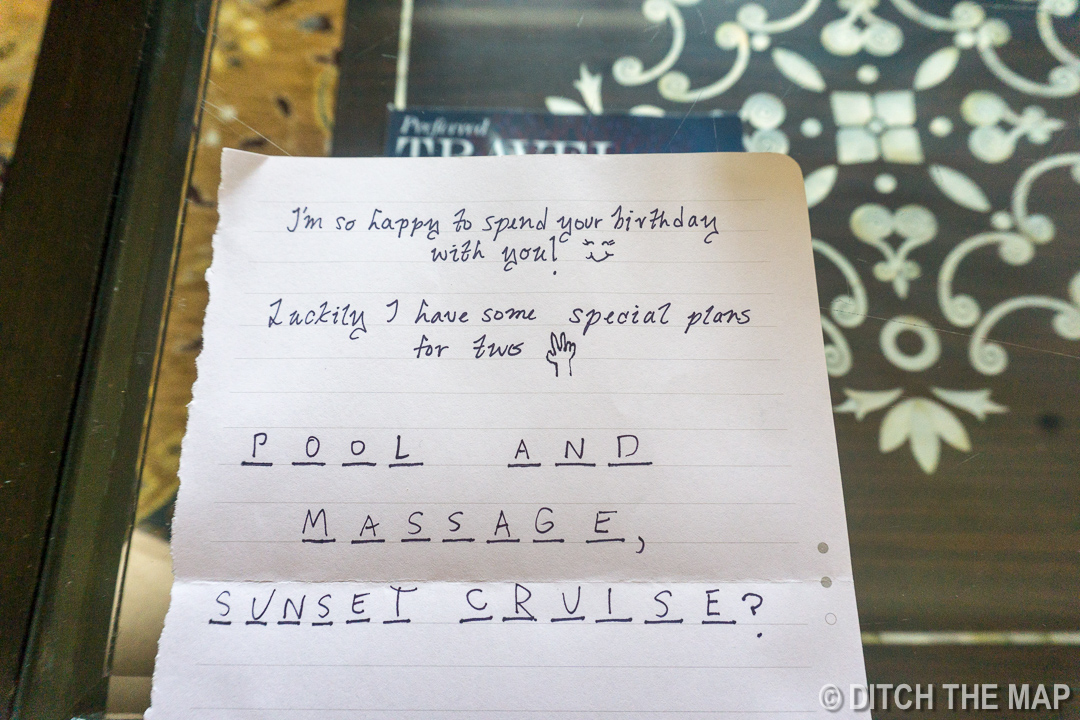 Preferred
TRAVEL
I'm so happy to spend your birthday
with you!
Luckily I have some special plans
for two
POOL AND
MASSAGE,
SUNSET CRUISE?
© DITCH THE MAP